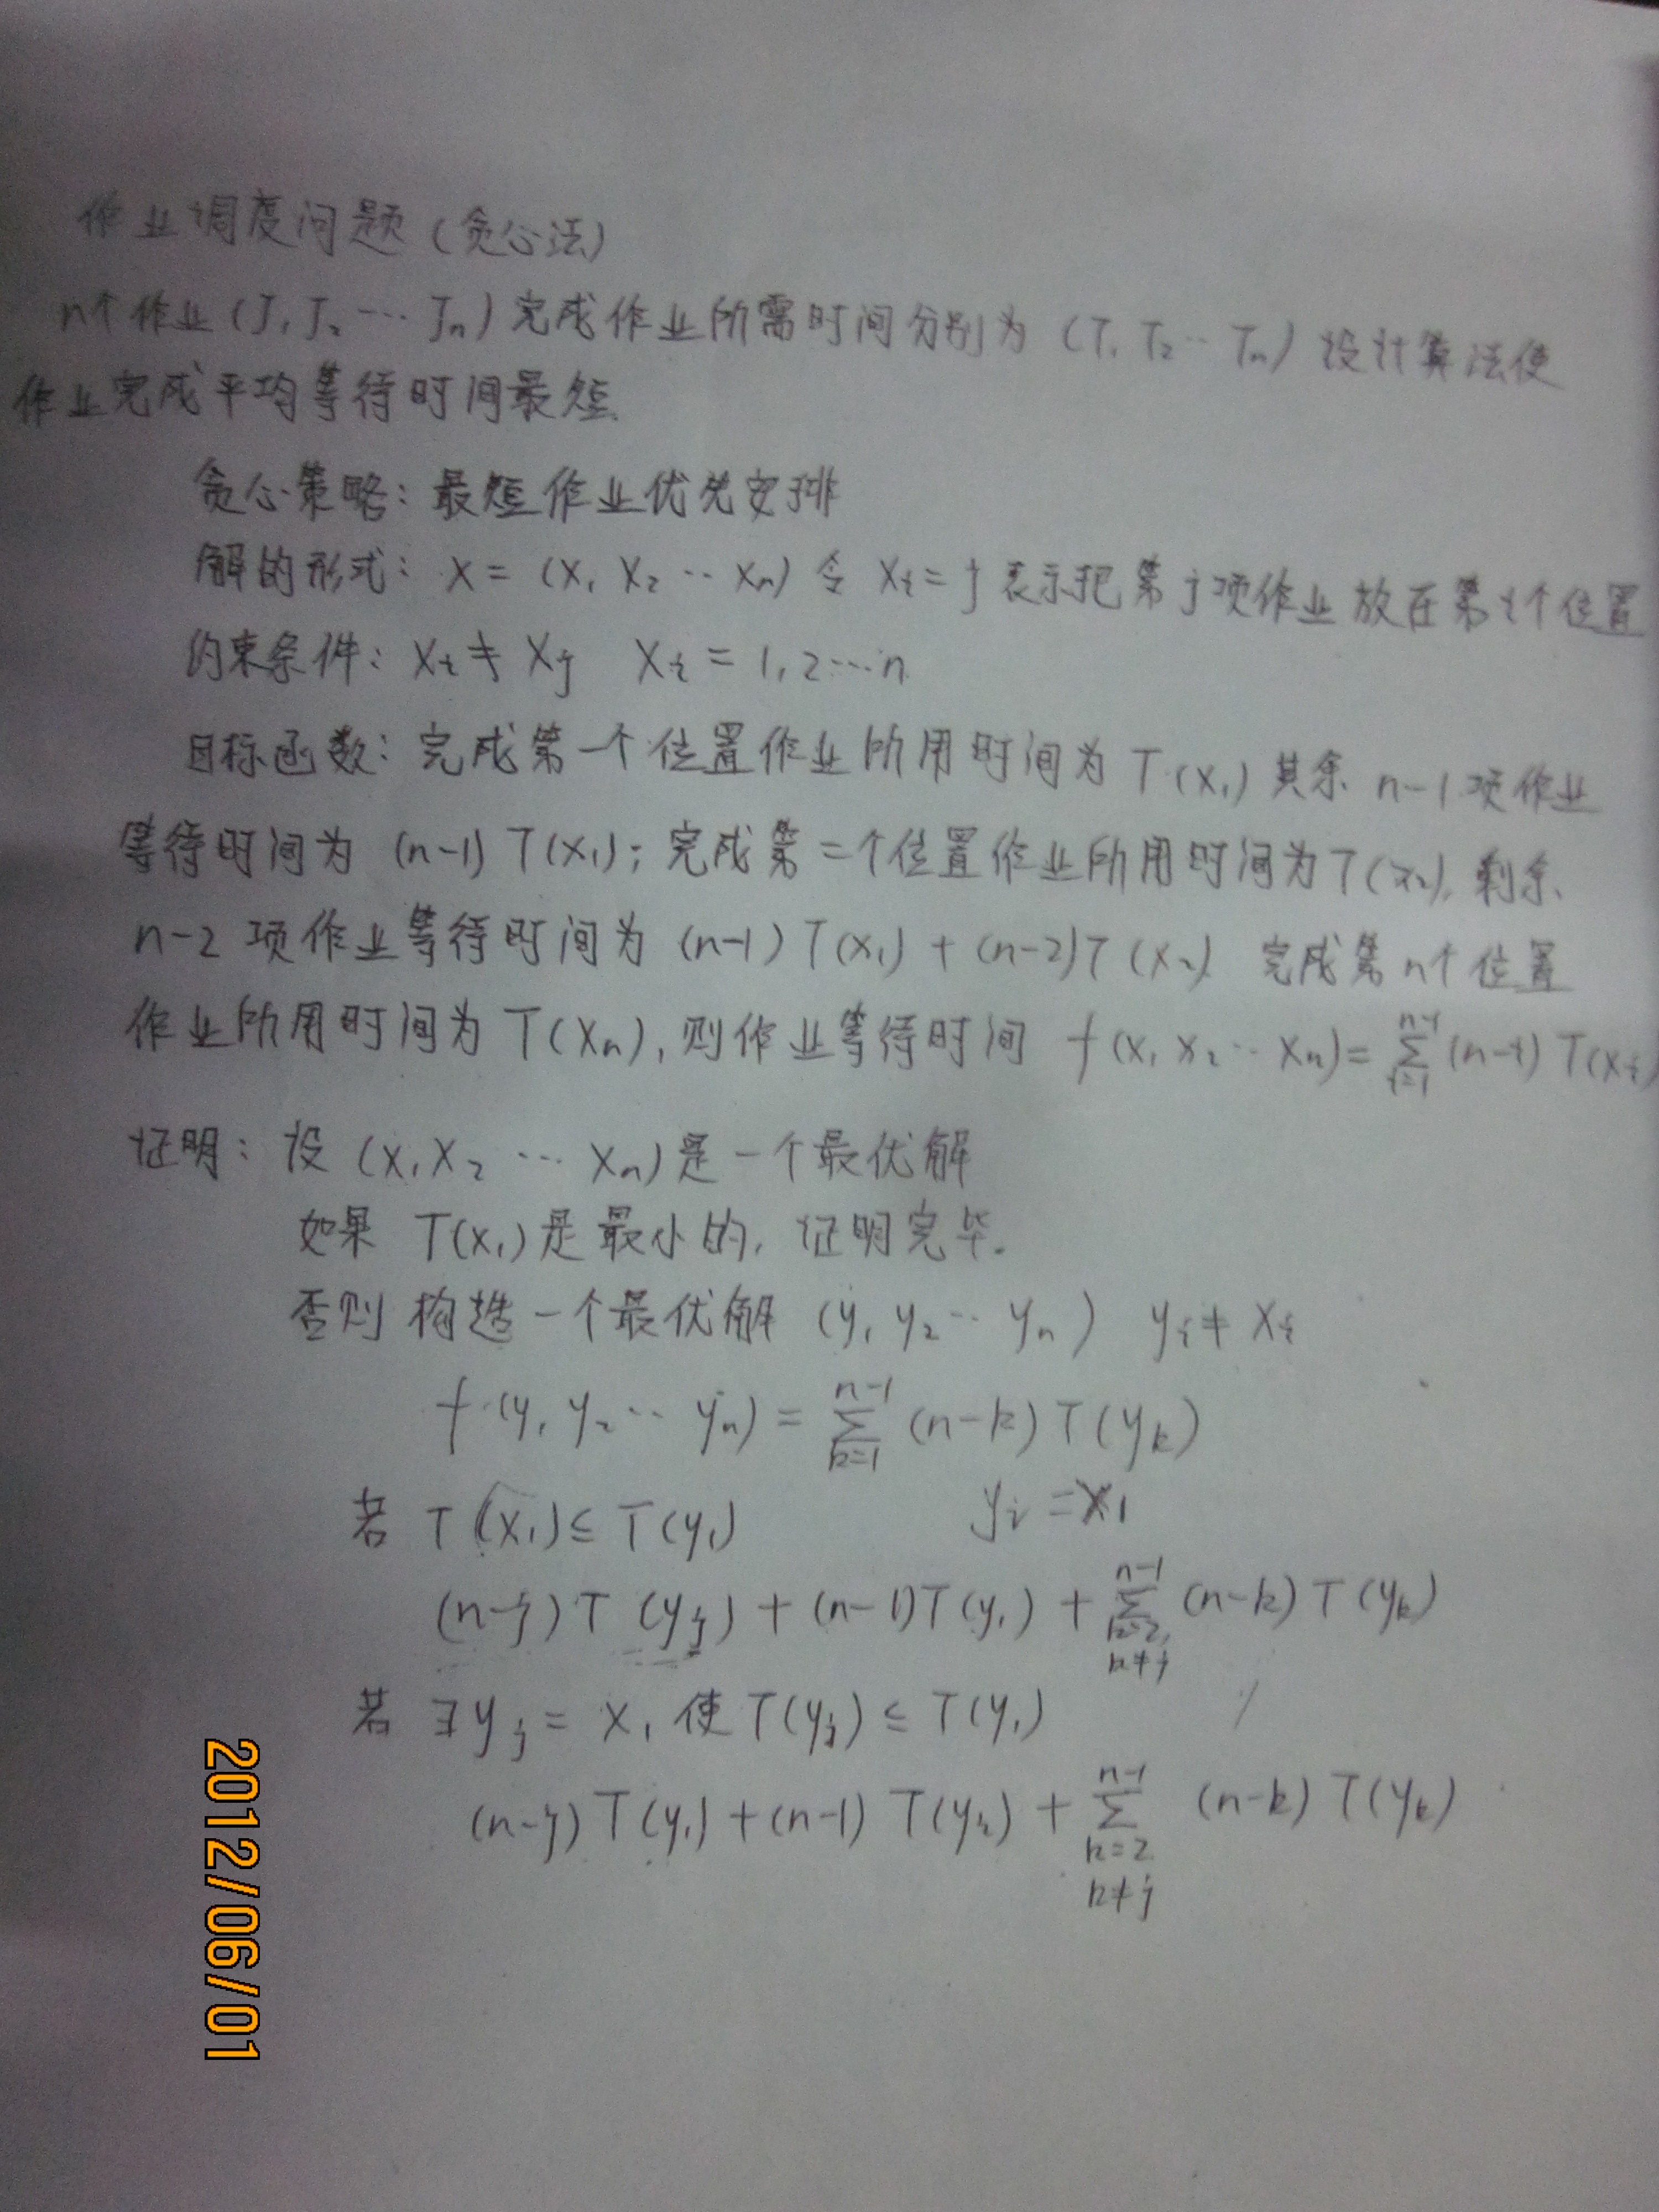 作业调度问题（贪心法）
n个作业（J₁ J₂ … Jₙ）完成作业所需时间分别为（T₁ T₂ … Tₙ）设计算法使
作业完成平均等待时间最短.
贪心策略：最短作业优先安排
解的形式：X = (X₁ X₂ … Xₙ) 令 Xᵢ = j 表示把第j项作业放在第i个位置
约束条件：Xᵢ ≠ Xⱼ Xᵢ = 1, 2 … n
目标函数：完成第一个位置作业所用时间为 T(X₁) 其余 n-1 项作业
等待时间为 (n-1) T(X₁)；完成第二个位置作业所用时间为 T(X₂), 剩余
n-2 项作业等待时间为 (n-1) T(X₁) + (n-2) T(X₂) 完成第n个位置
作业所用时间为 T(Xₙ), 则作业等待时间 f(X₁ X₂ … Xₙ) = ∑_{i=1}^{n-1} (n-i) T(Xᵢ)
证明：设 (X₁ X₂ … Xₙ) 是一个最优解
如果 T(X₁) 是最小的, 证明完毕.
否则 构造一个最优解 (y₁ y₂ … yₙ) yᵢ ≠ Xᵢ
f(y₁ y₂ … yₙ) = ∑_{k=1}^{n-1} (n-k) T(yₖ)
若 T(X₁) ≤ T(y₁) yᵢ = X₁
(n-j) T(yⱼ) + (n-1) T(y₁) + ∑_{k=2, k≠j}^{n-1} (n-k) T(yₖ)
若 ∃ yⱼ = X₁ 使 T(yⱼ) ≤ T(y₁)
(n-j) T(y₁) + (n-1) T() + ∑_{k=2, k≠j}^{n-1} (n-k) T(yₖ)
2012/06/01